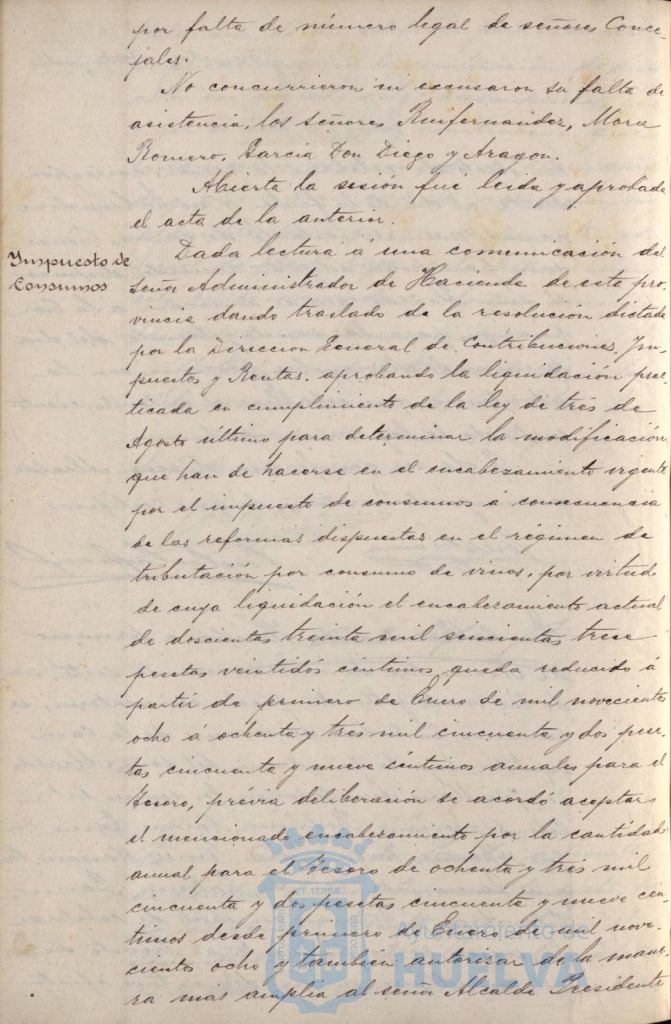 por falta de número legal de señores Conce-
jales.
No concurrieron ni excusaron su falta de
asistencia, los señores Ruifernandez, Mora
Romero, Garcia Don Diego y Aragon.
Abierta la sesión fué leida y aprobada
el acta de la anterior.
Impuesto de
Consumos
Dada lectura á una comunicación del
señor Administrador de Hacienda de esta pro-
vincia dando traslado de la resolución dictada
por la Direccion General de Contribuciones, Im-
puestos y Rentas, aprobando la liquidación prac-
ticada en cumplimiento de la ley de trés de
Agosto último para determinar la modificación
que han de hacerse en el encabezamiento vigente
por el impuesto de consumos á consecuencia
de las reformas dispuestas en el régimen de
tributación por consumo de vinos, por virtud
de cuya liquidación el encabezamiento actual
de doscientas treinta mil trece
pesetas veintidós céntimos queda reducido á
partir de primero de Enero de mil novecientos
ocho á ochenta y trés mil cincuenta y dos pese-
tas cincuenta y nueve céntimos anuales para el
Tesoro, prévia deliberación se acordó aceptar
el mencionado encabezamiento por la cantidad
anual para el Tesoro de ochenta y trés mil
cincuenta y dos pesetas cincuenta y nueve cén-
timos desde primero de Enero de mil nove-
cientos ocho y también autorizar de la mane-
ra más amplia al señor Alcalde Presidente
Ayuntamiento de
HUELVA